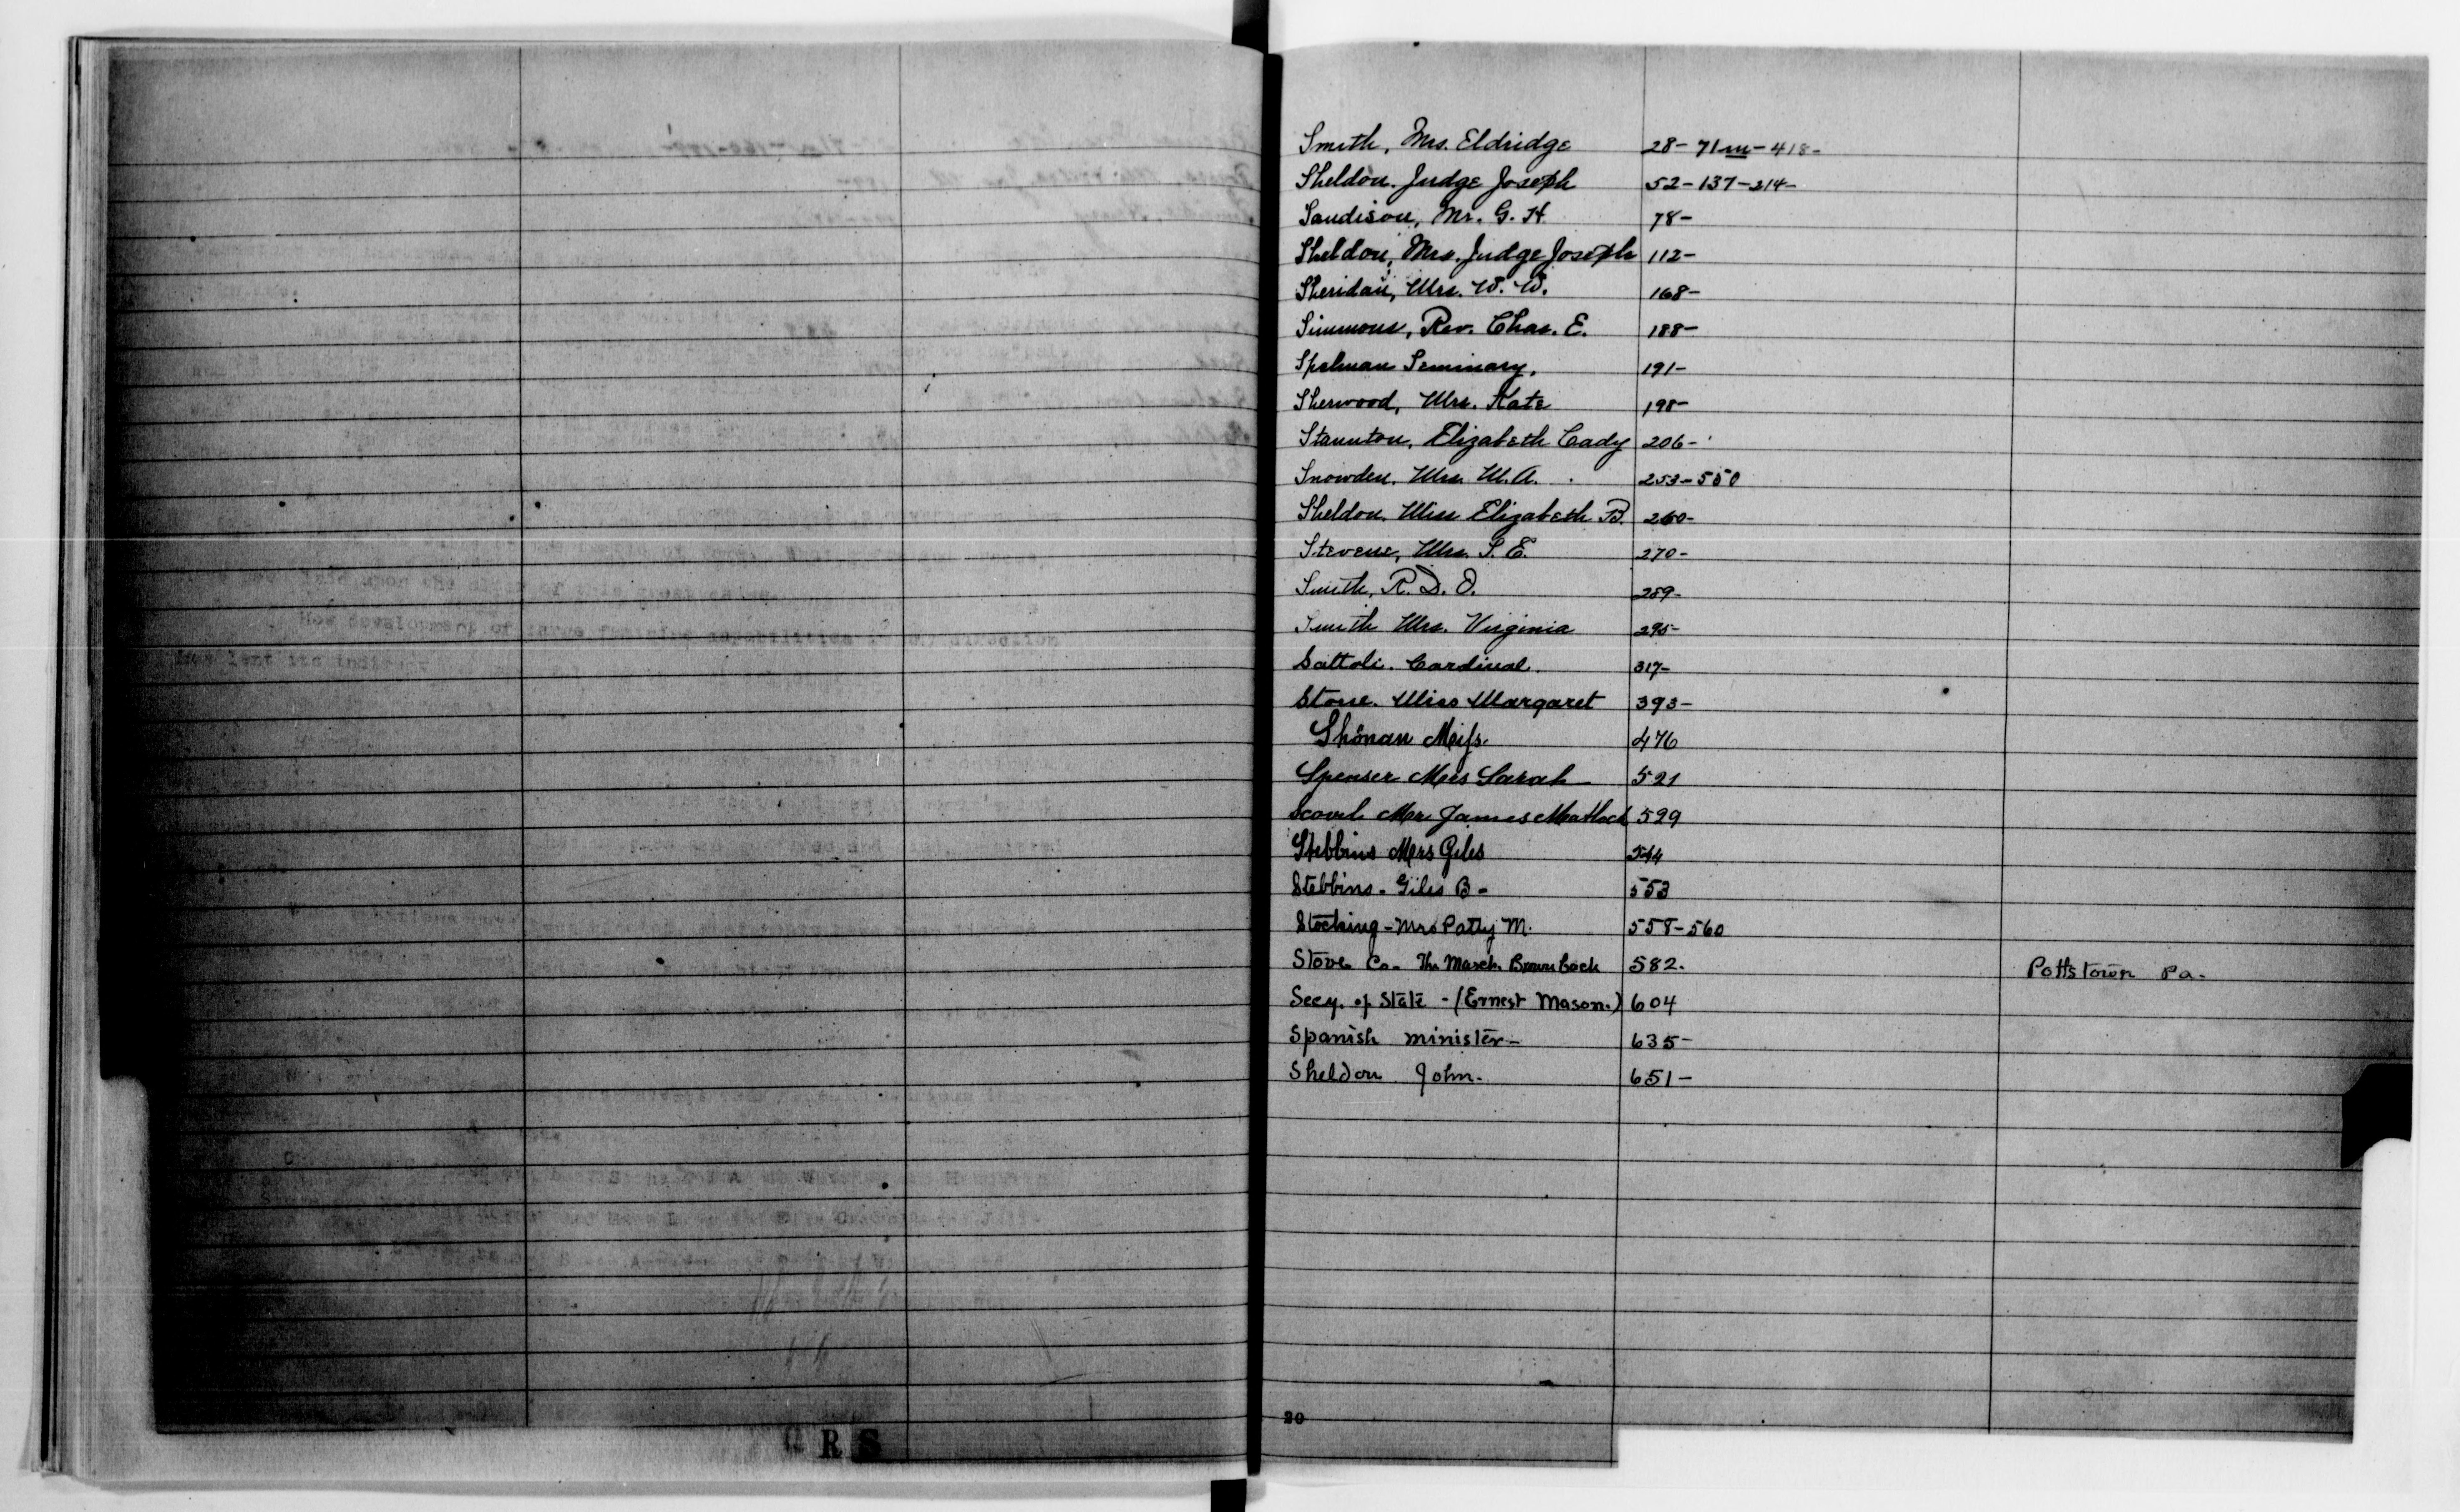 Smith, Mrs. Eldridge 28- 71 - 418-
Sheldon. Judge Joseph 52-137-214-
Sandison, Mr. G. H. 78-
Sheldon, Mrs. Judge Joseph 112-
Sheridan, Mrs. W. W. 168-
Simmons, Rev. Chas. E. 188-
Spelman Seminary. 191-
Sherwood, Mrs. Kate 198-
Staunton, Elizabeth Cady 206-
Snowden, Mrs. M. A. 253-550
Sheldon, Miss Elizabeth B. 260-
Stevens, Mrs. S. E. 270-
Smith, R. D. O. 289-
Smith Mrs. Virginia 295-
Sattoli. Cardinal. 317-
Stone. Miss Margaret 393-
Shönan 476
Spenser Mrs Sarah 521
Scovel Mr James Matlock 529
Stebbins Mrs Giles 544
Stebbins - Giles B - 553
Stocking - Mrs Patty M. 558-560
Stove Co- The March Brownback 582. Pottstown Pa.
Secy. of State - (Ernest Mason.) 604
Spanish minister - 635-
Sheldon John. 651-
20
Q R S